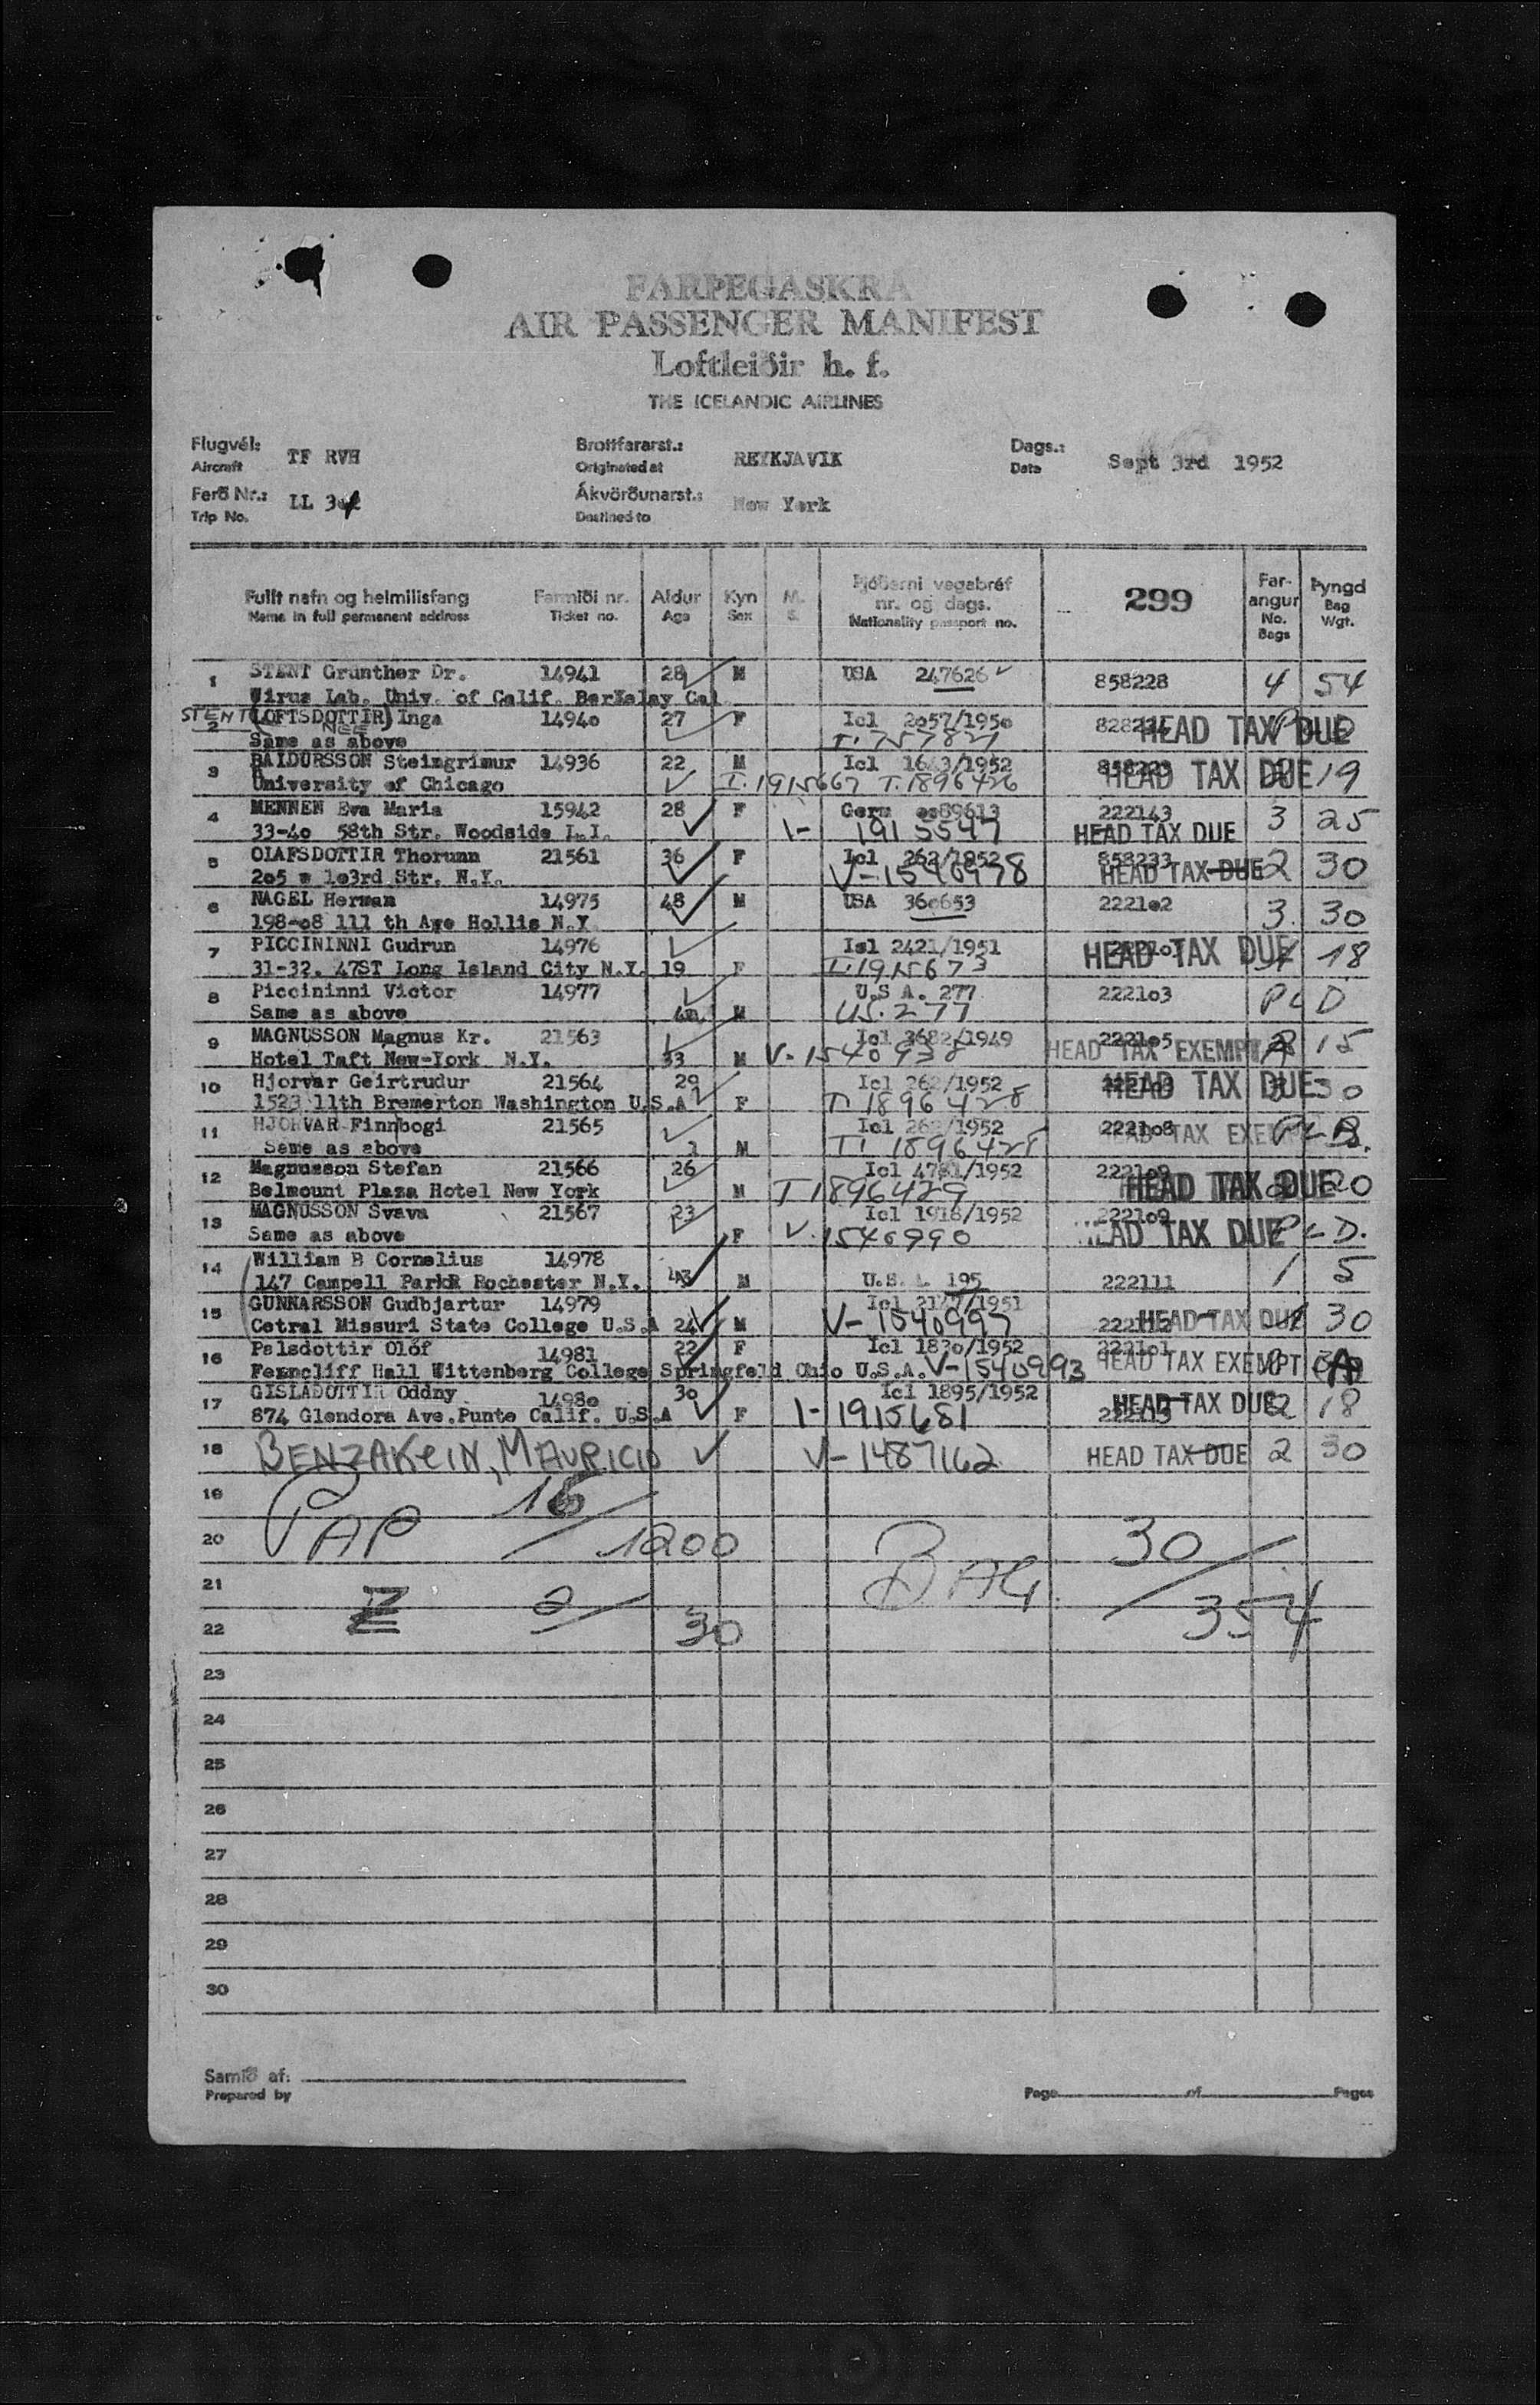 FARÞEGASKRÁ
AIR PASSENGER MANIFEST
Loftleiðir h. f.
THE ICELANDIC AIRLINES
Flugvél: TF RVH Brottfararst.: REYKJAVIK Dags.: Sept 3rd 1952
Aircraft Originated at Date
Ferð Nr.: LL 3 Ákvörðunarst.: New York
Trip No. Destined to
Fullt nafn og heimilisfang Farmiði nr. Aldur Kyn M. Þjóðerni vegabréf nr. og dags. 299 Farangur Þyngd
Name in full permanent address Ticket no. Age Sex S. Nationality passport no. No. Bags Bag Wgt.
1 STENT Grunther Dr. 14941 28 M USA 247626 858228 4 54
Virus Lab. Univ. of Calif. Berkelay Cal
STENT 2 (LOFTSDOTTIR) Inga 14940 27 F Icl 2o57/195o HEAD TAX DUE
NEE
Same as above T. 757821
3 BALDURSSON Steingrimur 14936 22 M Icl 1643/1952 HEAD TAX DUE 19
University of Chicago I. 1915667 T. 1896426
4 MENNEN Eva Maria 15942 28 F Germ oo89613 222143 3 25
33-4o 58th Str. Woodside L.I. I- 1915547 HEAD TAX DUE
5 OLAFSDOTTIR Thorunn 21561 36 F Icl 262/1952 858233 2 30
2o5 w 1o3rd Str. N.Y. V-1540978 HEAD TAX DUE
6 NAGEL Herman 14975 48 M USA 36o653 2221o2 3 30
198-o8 111 th Ave Hollis N.Y
7 PICCININNI Gudrun 14976 Isl 2421/1951 HEAD TAX DUE 18
31-32. 47ST Long Island City N.Y. 19 F I.1915673
8 Piccininni Victor 14977 U.S A. 277 2221o3 PLD
Same as above 4m M US. 277
9 MAGNUSSON Magnus Kr. 21563 Icl 3682/1949 2221o5 2 15
Hotel Taft New-York N.Y. 33 M V-1540938 HEAD TAX EXEMPT
10 Hjorvar Geirtrudur 21564 29 Icl 262/1952 HEAD TAX DUE 30
1523 11th Bremerton Washington U.S.A F T. 1896428
11 HJORVAR Finnbogi 21565 Icl 262/1952 2221o8 HEAD TAX EXEMPT
Same as above 1 M T. 1896428
12 Magnusson Stefan 21566 26 Icl 4781/1952 2221o9 20
Belmount Plaza Hotel New York M T 1896429 HEAD TAX DUE
13 MAGNUSSON Svava 21567 23 Icl 1918/1952 2221o9 PLD.
Same as above F V. 1540990 HEAD TAX DUE
14 William B Cornelius 14978 1 5
147 Campell ParkR Rochester N.Y. 43 M U.S. A. 195 222111
15 GUNNARSSON Gudbjartur 14979 Icl 2147/1951 30
Cetral Missuri State College U.S.A 24 M V-1540997 HEAD TAX DUE
16 Palsdottir Olöf 14981 22 F Icl 183o/1952 2221o1
Ferncliff Hall Wittenberg College Springfeld Ohio U.S.A. V-1540993 HEAD TAX EXEMPT
17 GISLADOTTIR Oddny 1498o 3o Icl 1895/1952 HEAD TAX DUE 2 18
874 Glendora Ave.Punte Calif. U.S.A F I-1915681 222113
18 BENZAKEIN, MAURICIO V-1487162 HEAD TAX DUE 2 30
19
20 PAP 16/1200 BAG 30/354
21
22 Z 2/30
23
24
25
26
27
28
29
30
Samið af:
Prepared by Page of Pages